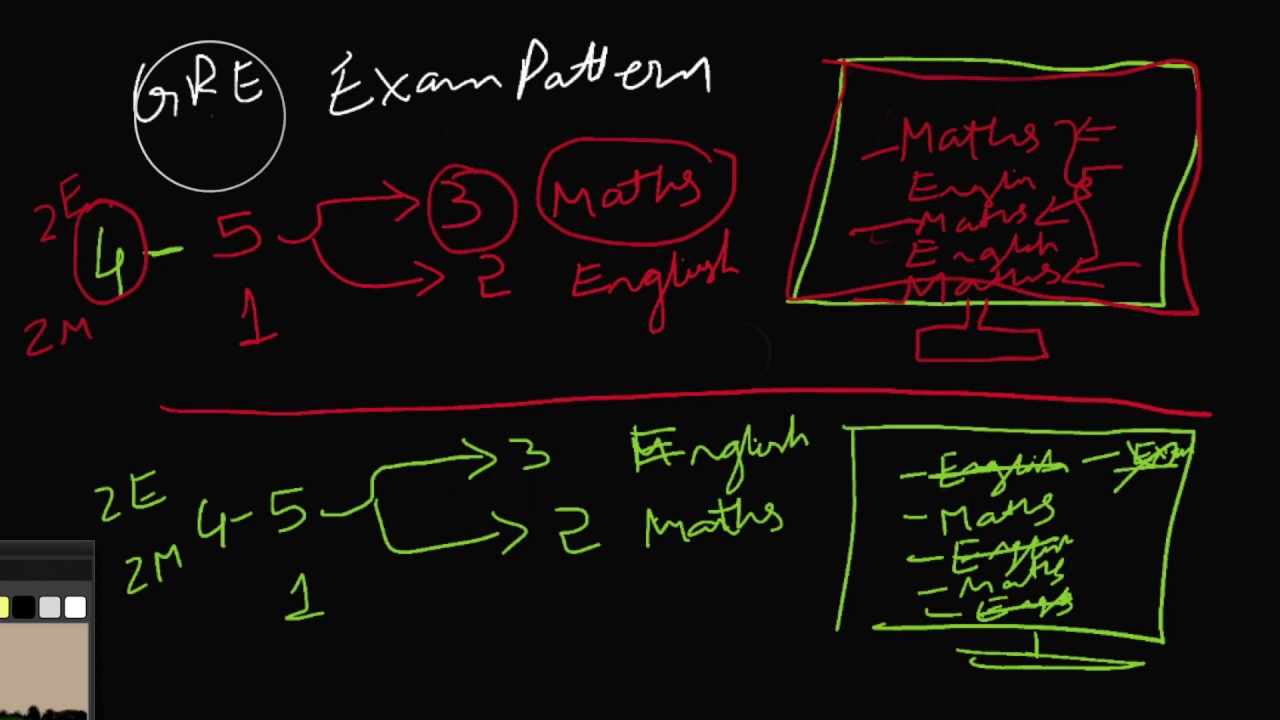 GRE Exam Pattern
2E
4 - 5 3 Maths
2 English
2M 1
Maths
Englin
Maths
English
Maths
3 English
2E
4-5 2 Maths
2M
1
English - Exp
Maths
English
Maths
Engs